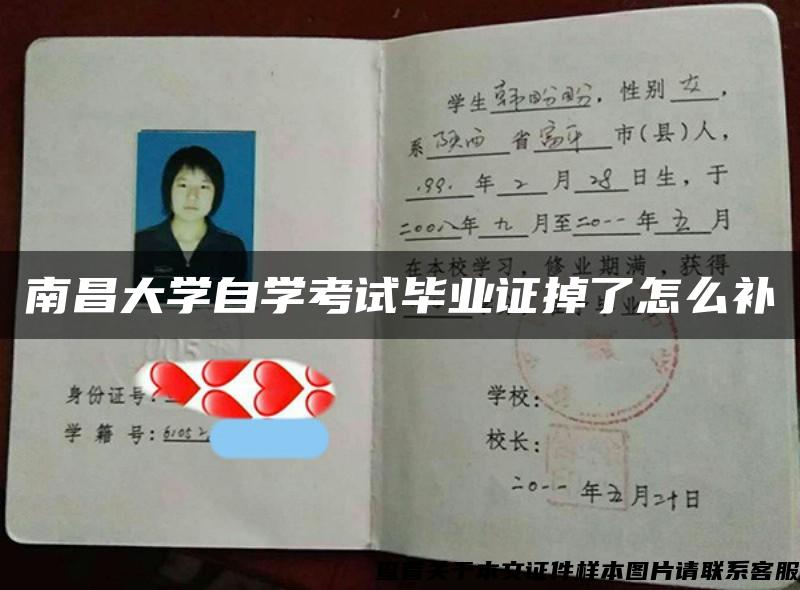 学生韩盼盼，性别女，
系陕西省富平市(县)人，
1991年2月28日生，于
二00八年九月至二0一一年五月
在本校学习，修业期满，获得
南昌大学自学考试毕业证掉了怎么补
身份证号：
学籍号：61052
学校：
校长：
二0一一年五月二十日
查看关于本文证件样本图片请联系客服